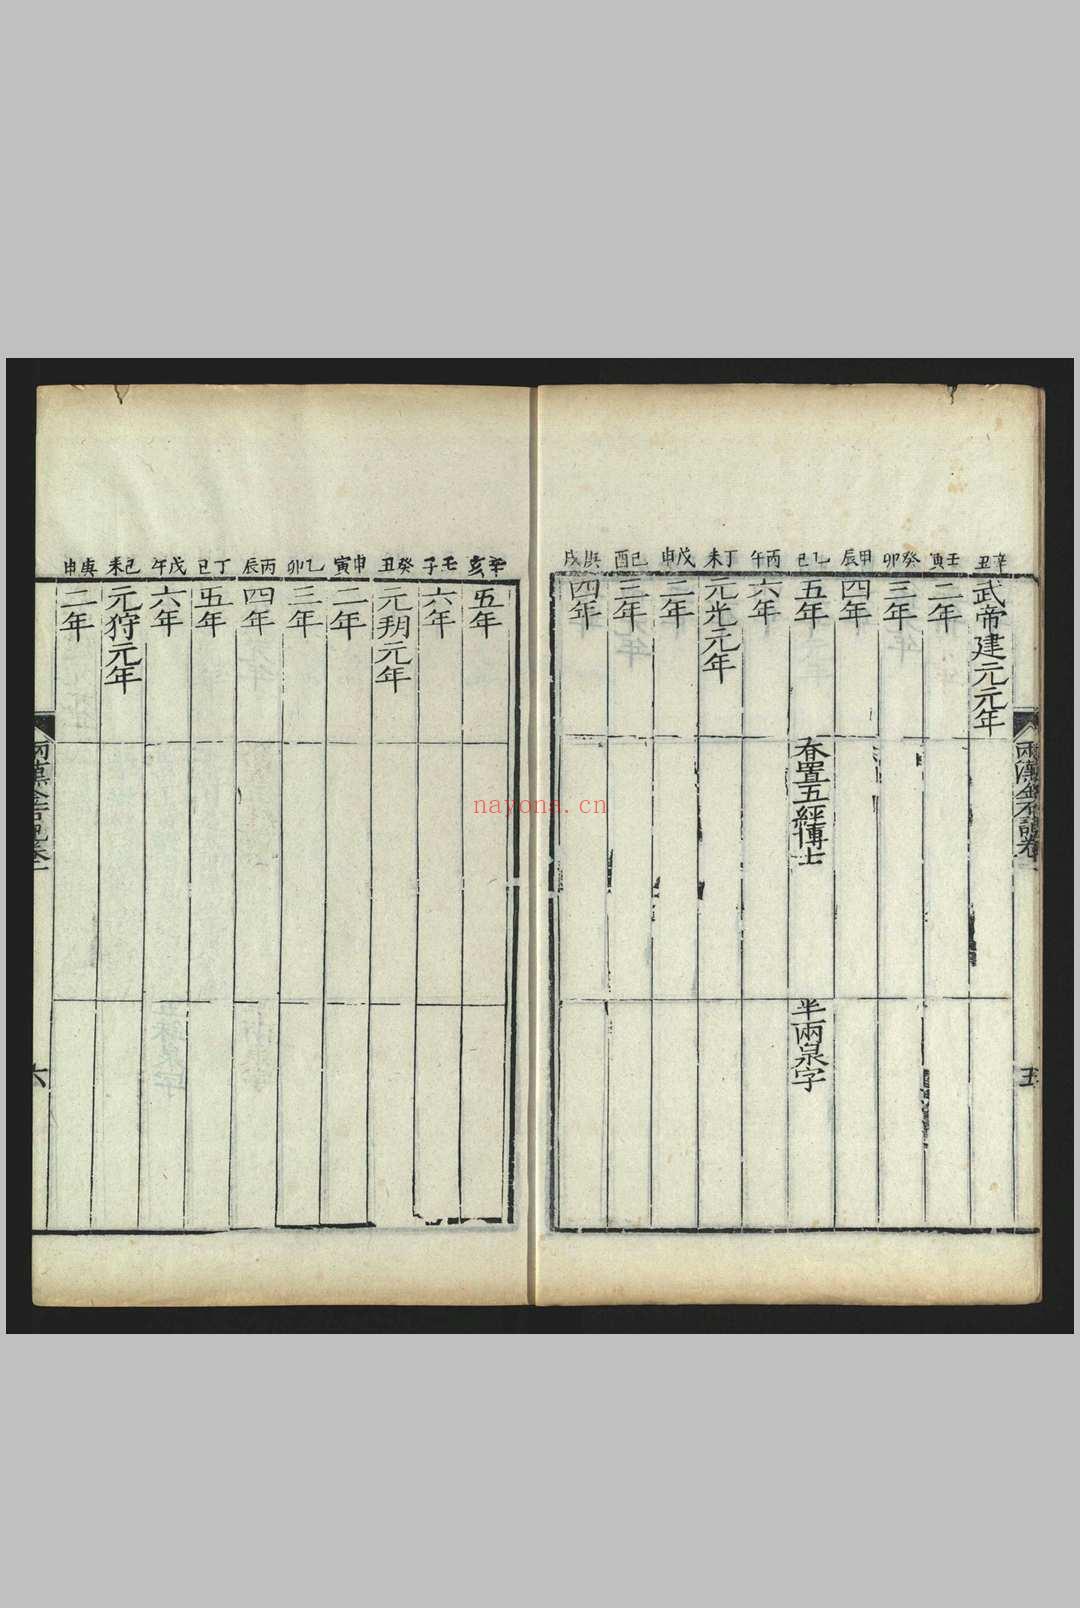 兩漢金石記卷一
五
辛丑
武帝建元元年
壬寅
二年
癸卯
三年
甲辰
四年
乙巳
五年
春置五經博士
半兩泉字
丙午
六年
丁未
元光元年
戊申
二年
己酉
三年
庚戌
四年
辛亥
五年
壬子
六年
癸丑
元朔元年
甲寅
二年
乙卯
三年
丙辰
四年
丁巳
五年
戊午
六年
己未
元狩元年
庚申
二年
兩漢金石記卷一
六
nayona.cn